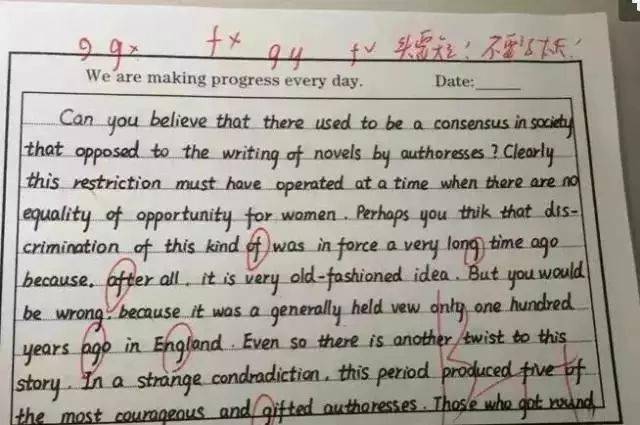 9 gx fx 9 y fv
We are making progress every day. Date:
Can you believe that there used to be a consensus in society
that opposed to the writing of novels by authoresses? Clearly
this restriction must have operated at a time when there are no
equality of opportunity for women. Perhaps you thik that dis-
crimination of this kind of was in force a very long time ago
because, after all, it is very old-fashioned idea. But you would
be wrong, because it was a generally held vew only one hundred
years ago in England. Even so there is another twist to this
story. In a strange condradiction, this period produced five of
the most courageous and gifted authoresses. Those who got round